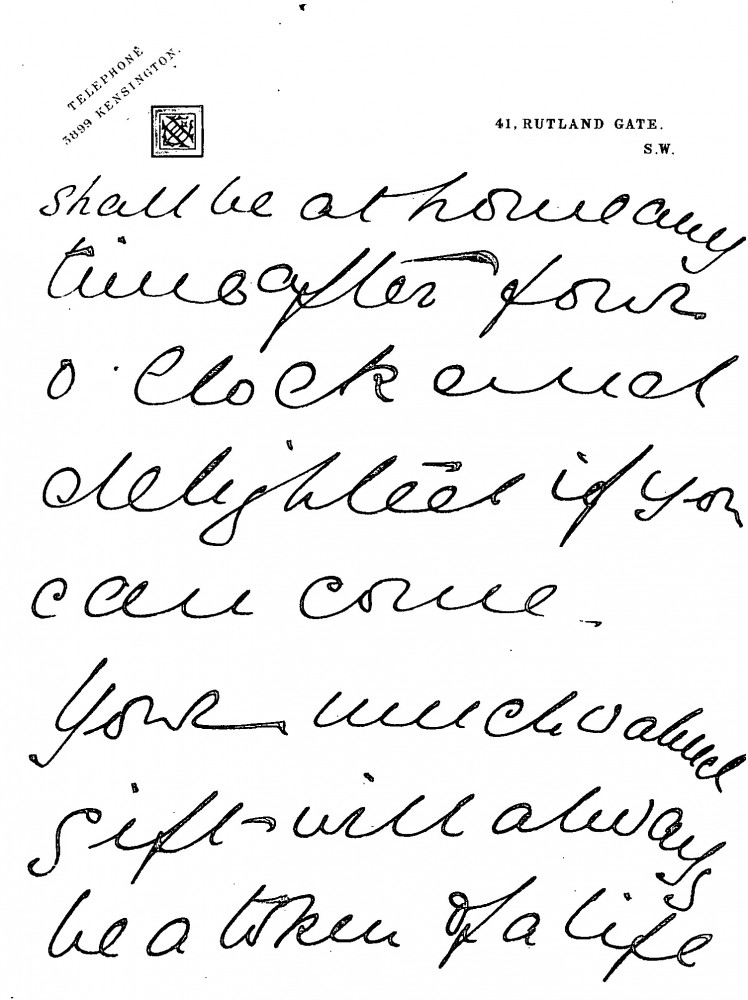 TELEPHONE
3899 KENSINGTON.
41, RUTLAND GATE.
S.W.
shall be at home any
time after four
o'Clock and
delighted if you
can come.
Your much valued
gift will always
be a token of a life